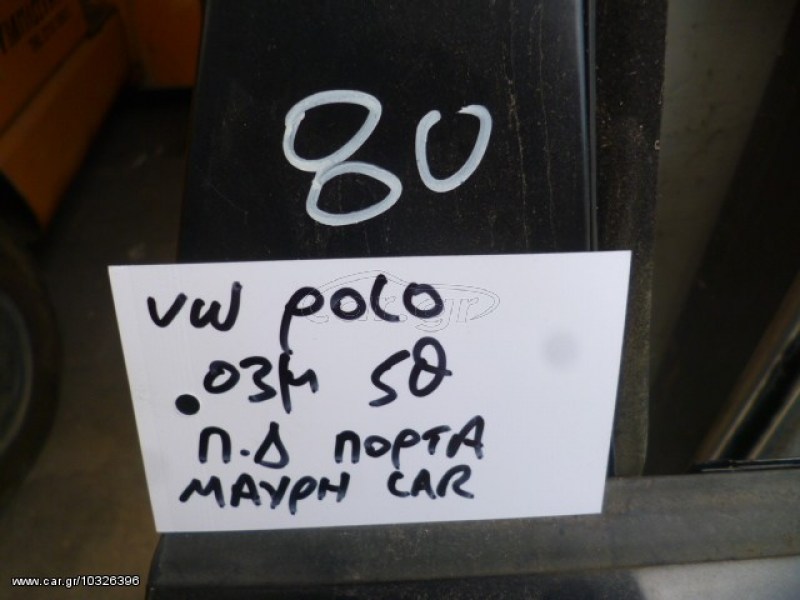 80
VW POLO
.03μ 5θ
Π.Δ ΠΟΡΤΑ
ΜΑΥΡΗ CAR
www.car.gr/10326396